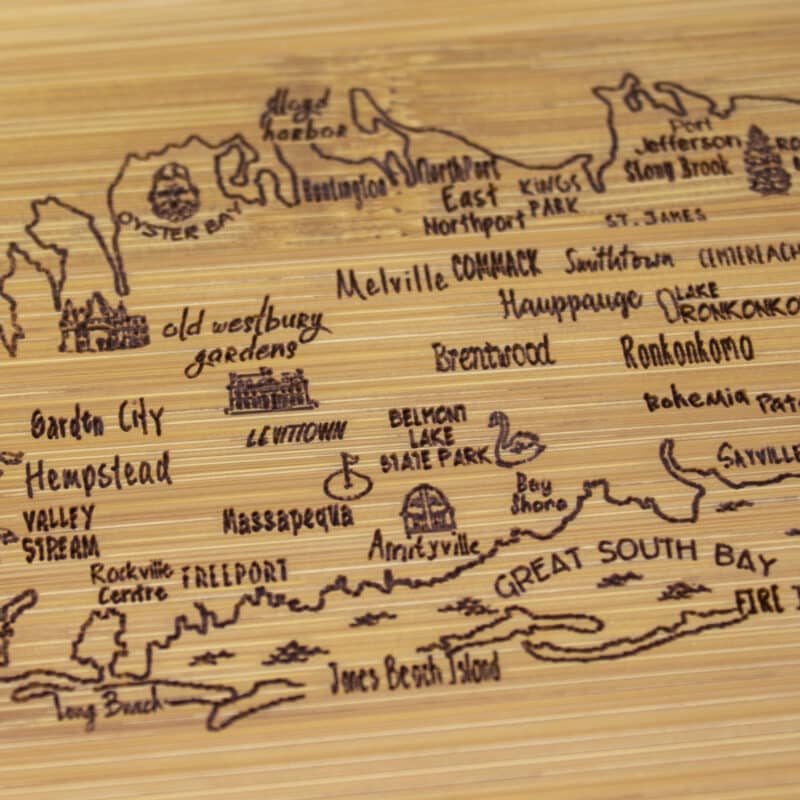 lloyd
harbor
Port
Jefferson
Stony Brook
OYSTER BAY
Huntington
NorthPort
East
Northport
KINGS
PARK
ST. JAMES
Melville
COMMACK
Smithtown
CENTEREACH
Hauppauge
LAKE
RONKONKO
old westbury
gardens
Brentwood
Ronkonkoma
Garden City
LEVITTOWN
BELMONT
LAKE
STATE PARK
Bohemia
Hempstead
SAYVILLE
VALLEY
STREAM
Massapequa
Amityville
Bay
Shore
Rockville
Centre
FREEPORT
GREAT SOUTH BAY
FIRE
Jones Beach Island
Long Beach